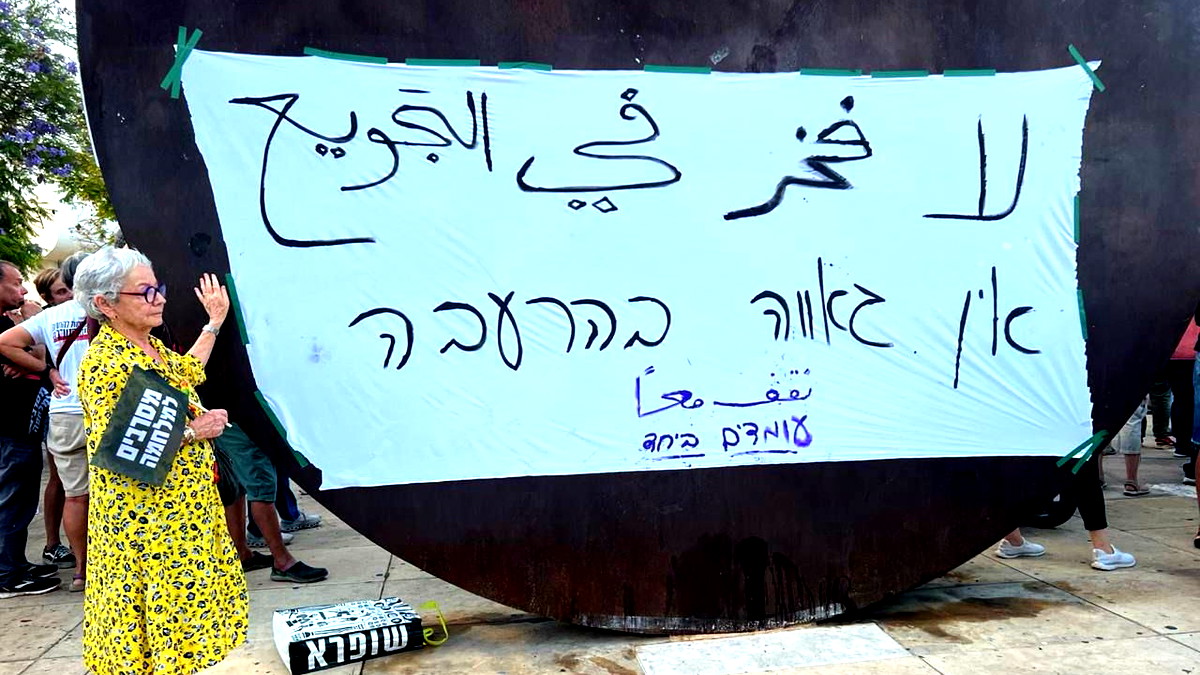 لا فخر في التجويع
אין גאווה בהרעבה
نقف معاً
עומדים ביחד
מסרבים
למלחמה
שופרא